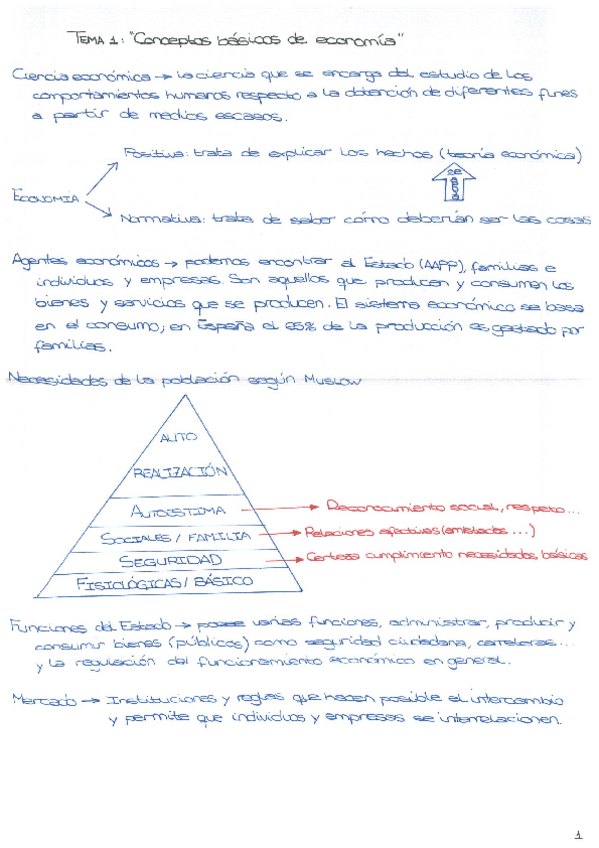 TEMA 1: "Conceptos básicos de economía"
Ciencia económica → la ciencia que se encarga del estudio de los
comportamientos humanos respecto a la obtención de diferentes fines
a partir de medios escasos.
Positiva: trata de explicar los hechos (teoría económica)
se
ECONOMIA
Normativa: trata de saber cómo deberían ser las cosas
Agentes económicos → podemos encontrar al Estado (AAPP), familias e
individuos y empresas. Son aquellos que producen y consumen los
bienes y servicios que se producen. El sistema económico se basa
en el consumo; en España el % de la producción es gastado por
familias.
Necesidades de la población según Muslow
AUTO
REALIZACIÓN
AUTOESTIMA → Reconocimiento social, respeto...
SOCIALES / FAMILIA → Relaciones afectivas (amistades...)
SEGURIDAD → Certeza cumplimiento necesidades básicas
FISIOLÓGICAS / BÁSICO
Funciones del Estado → posee varias funciones, administrar, producir y
consumir bienes (públicos) como seguridad ciudadana, carreteras...
y la regulación del funcionamiento económico en general.
Mercado → Instituciones y reglas que hacen posible el intercambio
y permite que individuos y empresas se interrelacionen.
1